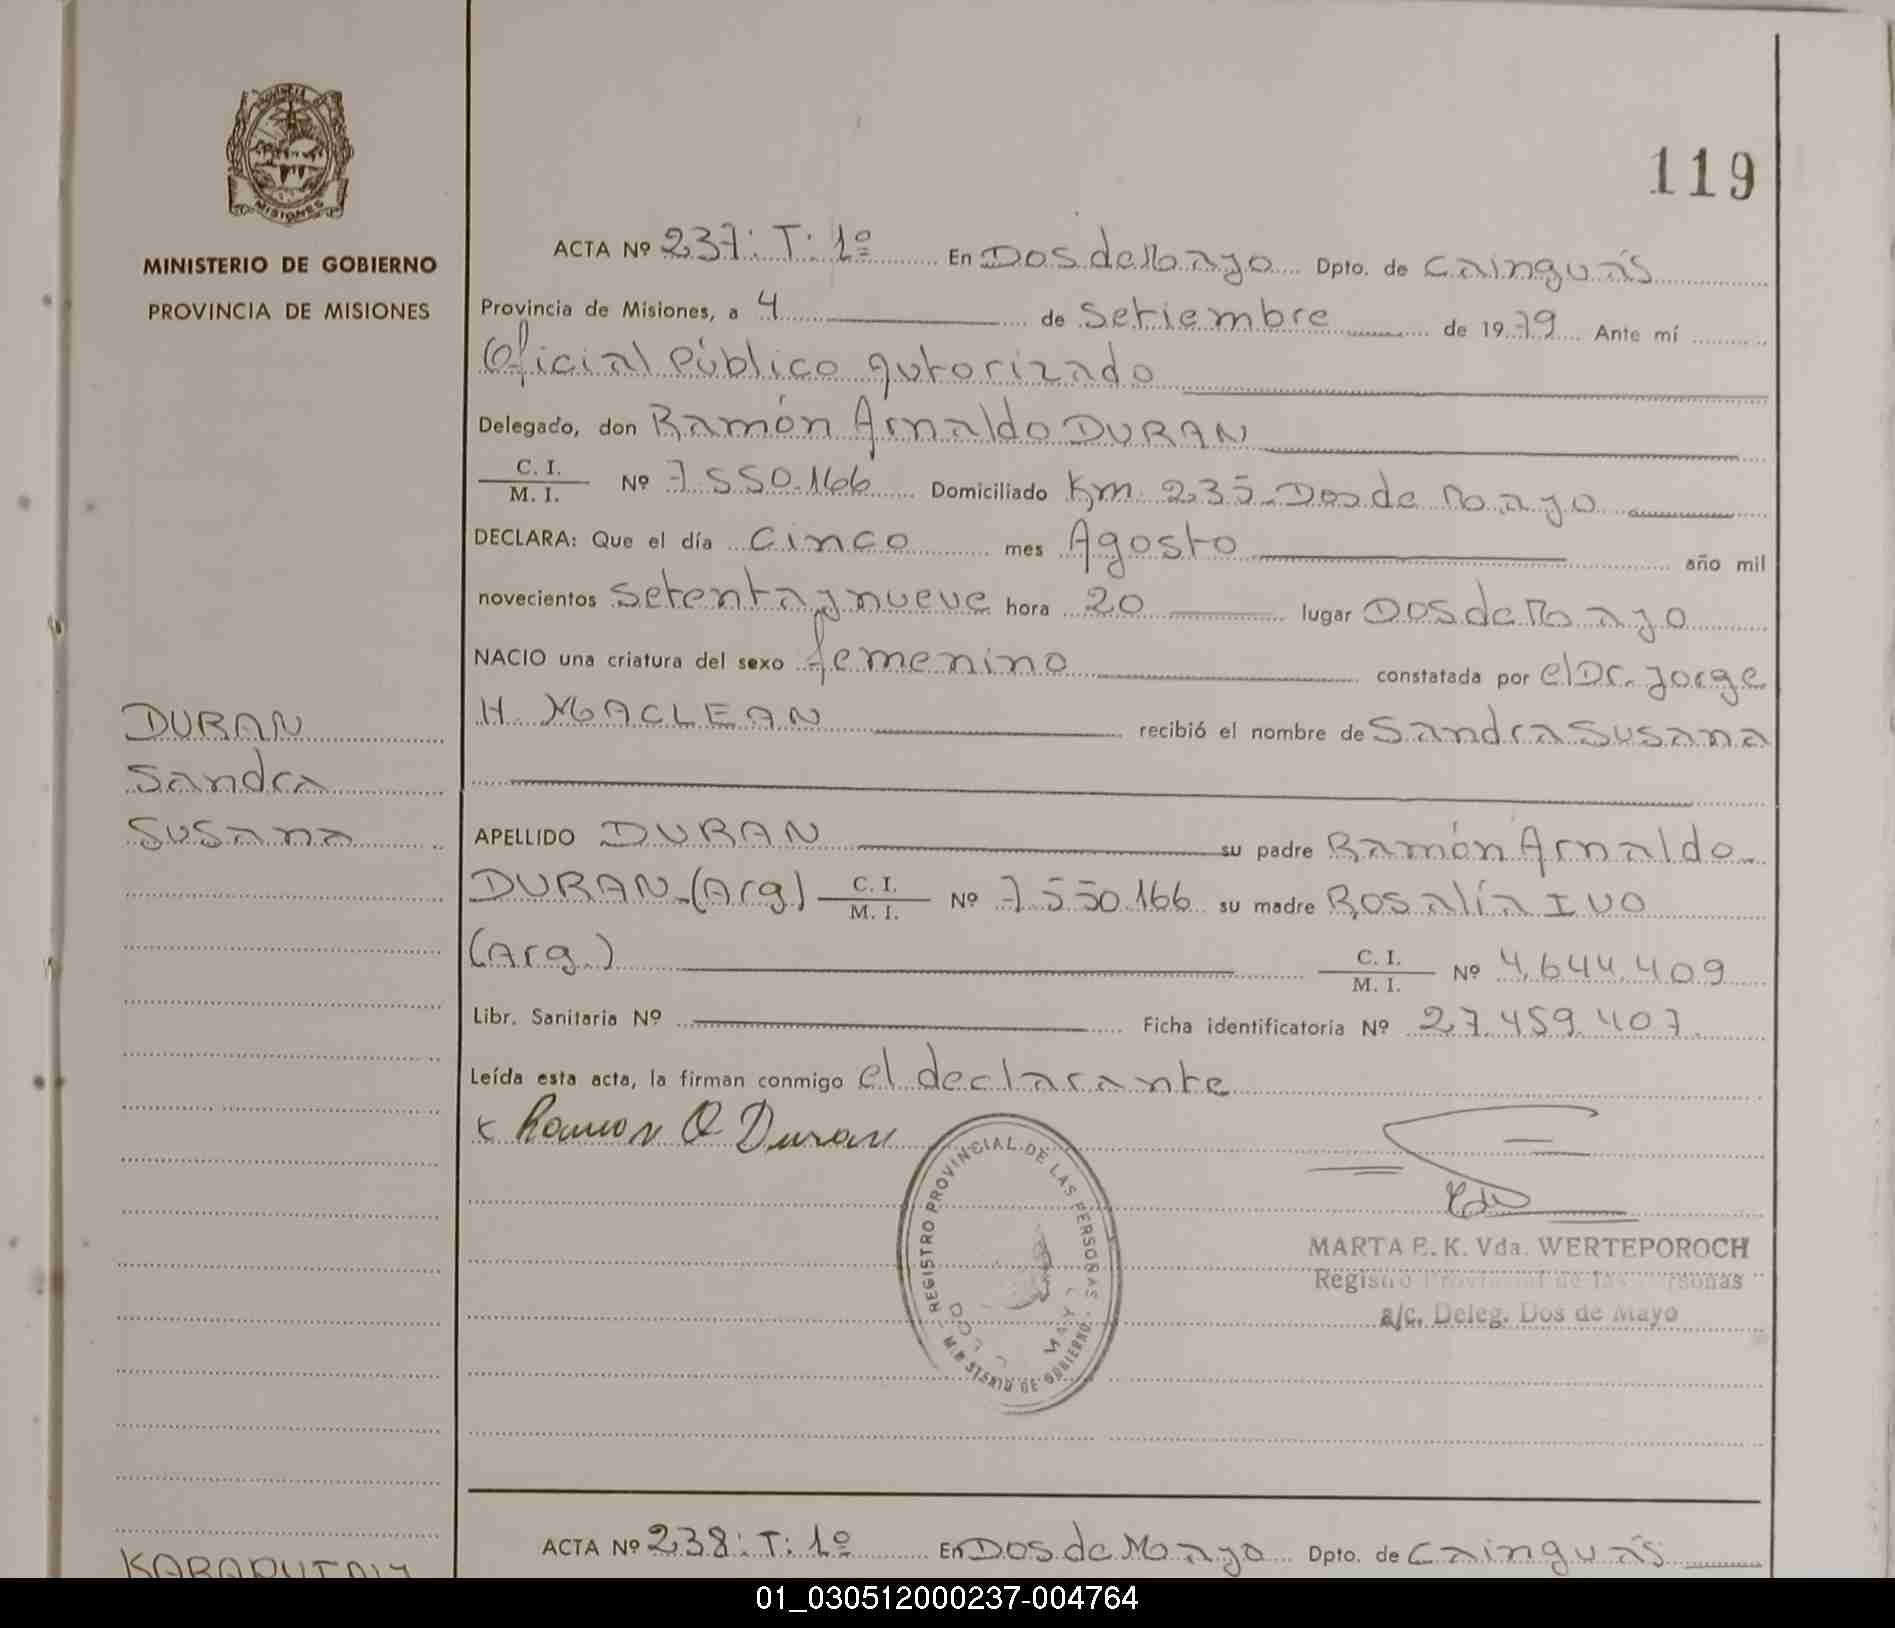 PROVINCIA
MISIONES
MINISTERIO DE GOBIERNO
PROVINCIA DE MISIONES
119
ACTA Nº 237: T: 1º En Dos de Mayo Dpto. de Cainguás
Provincia de Misiones, a 4 de Setiembre de 1979 Ante mí
Oficial Público autorizado
Delegado, don Ramón Arnaldo DURAN
C. I.
M. I. Nº 7550.166 Domiciliado Km. 235-Dos de Mayo
DECLARA: Que el día cinco mes Agosto año mil
novecientos setenta y nueve hora 20 lugar Dos de Mayo
NACIO una criatura del sexo femenino constatada por el Dr. Jorge
H. MACLEAN recibió el nombre de Sandra Susana
DURAN
Sandra
Susana
APELLIDO DURAN su padre Ramón Arnaldo
DURAN-(Arg) C. I.
M. I. Nº 7550.166 su madre Rosalía IVO
(Arg.) C. I.
M. I. Nº 4.644.409
Libr. Sanitaria Nº Ficha identificatoria Nº 27.459.407
Leída esta acta, la firman conmigo el declarante
x Ramon A Duran
REGISTRO PROVINCIAL DE LAS PERSONAS
MINISTERIO DE GOBIERNO
MARTA E. K. Vda. WERTEPOROCH
Registro Provincial de las Personas
a/c. Deleg. Dos de Mayo
ACTA Nº 238: T: 1º En Dos de Mayo Dpto. de Cainguás
01_030512000237-004764